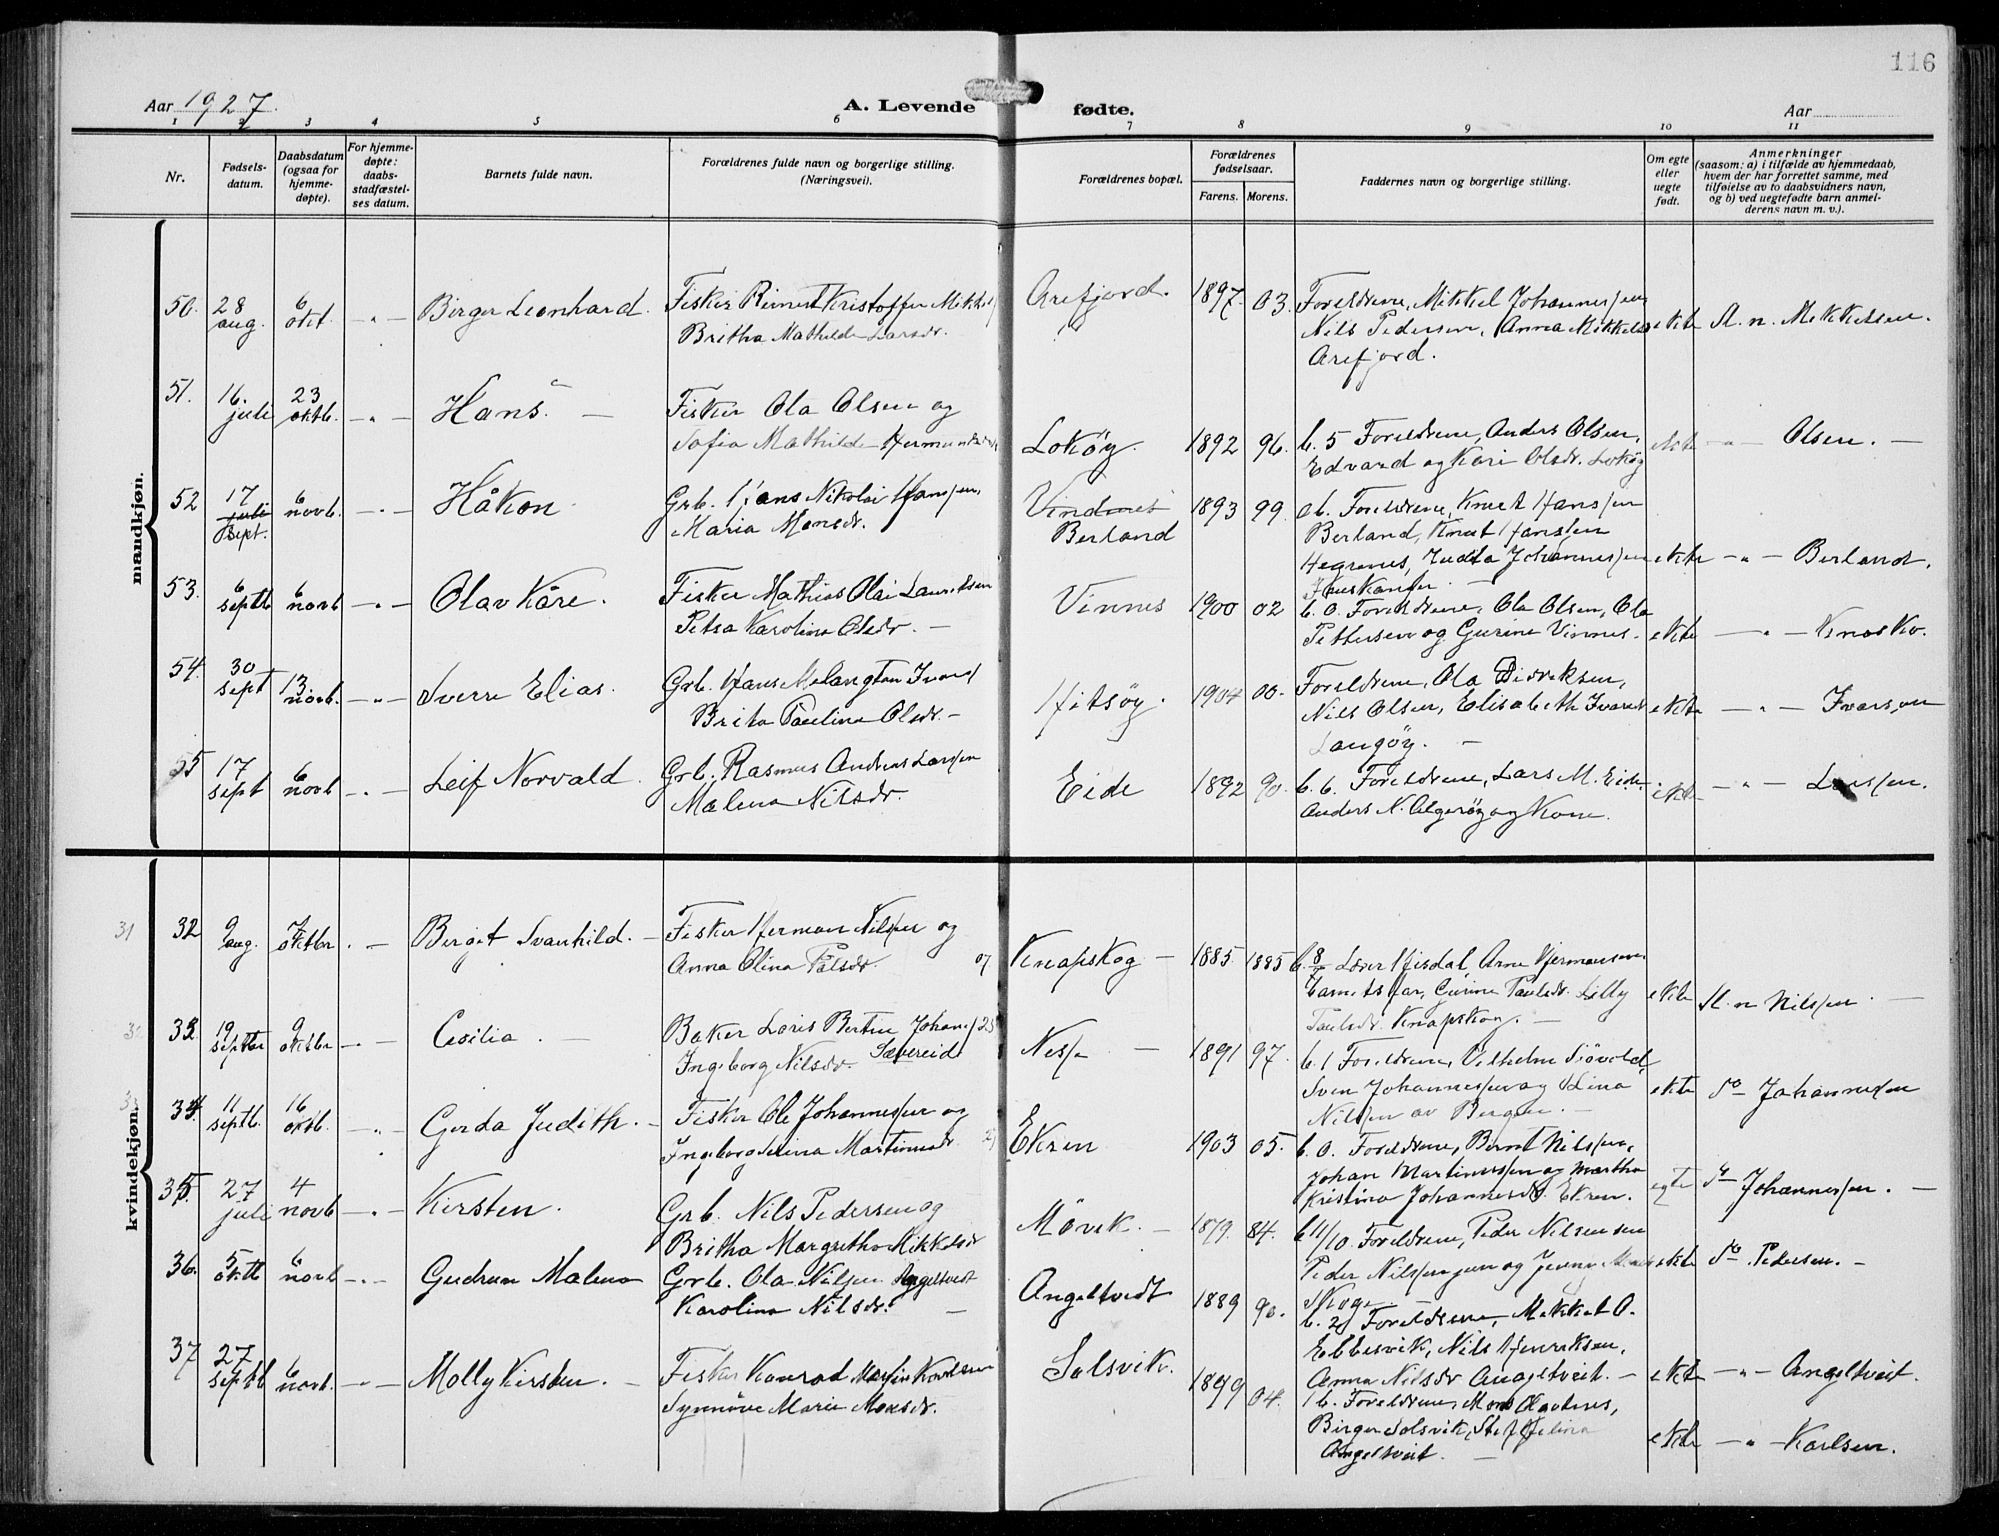 116
Aar 1927.
A. Levende fødte.
Aar
1 2 3 4 5 6 7 8 9 10 11
Nr.
Fødsels-
datum.
Daabsdatum
(ogsaa for
hjemme-
døpte).
For hjemme-
døpte:
daabs-
stadfæstel-
ses datum.
Barnets fulde navn.
Forældrenes fulde navn og borgerlige stilling.
(Næringsvei).
Forældrenes bopæl.
Forældrenes
fødselsaar.
Farens. Morens.
Faddernes navn og borgerlige stilling.
Om egte
eller
uegte
født.
Anmerkninger
(saasom: a) i tilfælde av hjemmedaab,
hvem der har forrettet samme, med
tilføielse av to daabsvidners navn,
og b) ved uegtefødte barn anmel-
derens navn m. v.).
mandkjøn.
50. 28 aug. 6 okt. - " - Birger Leonhard.
Fisker Kristoffer
Britha Mathilde Larsdr.
Arefjord. 1897. 03.
Foreldrene, Mikkel Johannessen
Nils Pedersen, Anna Mikkelsd
Arefjord.
ekte St. n. Mikkelsen.
51. 16. juli 23 oktb. - " - Hans. -
Fisker Ola Olsen og
Sofia Mathilde
Lokøy. 1892 96.
b. 5 Foreldrene, Anders Olsen,
Edvard og Kari Olsdr. Lokøy
ekte - " - Olsen. -
52 17 juli Sept. 6 novb. - " - Håkon
Grb. Hans Nikolai Hanssen,
Maria Monsdr.
Vindnes
Berland
1893 99.
Foreldrene, Knut Hanssen
Berland, Knut Hanssen
Hegrenes, Johannessen
ekte - " - Berland.
53. 6 septb 6 novb - " - Olav Kåre.
Fisker Mathias Olai Lauritsen
Petra Karolina Olsdr. -
Vinnes 1900 02
b. 0. Foreldrene, Ola Olsen, Ola
Pettersen og Gurine Vinnes.
ekte - " -
54. 30 sept 13. novb. - " - Sverre Elias.
Grb. Hans Melangton
Brita Paulina Olsdr. -
Hitsøy. 1904 00.
Foreldrene, Ola Didriksen,
Nils Olsen, Elisabeth Ivarsd
Langøy. -
ekte - " - Ivarsen
55 17 sept 6 novb - " - Leif Norvald.
Grb. Rasmus Andreas Larssen
Malena Nilsdr.
Eide 1892 90.
b. 6. Foreldrene, Lars M. Eide
Anders N. Algerøy og Kone.
ekte - " - Larssen.
kvindekjøn.
31 32 9 aug. 7 oktbr . - Berget Svanhild. -
Fisker Herman Nilssen og
Anna Olina Pålsdr. 07
Knapskog - 1885. 1885
b. 8 Lærer Hisdal, Arne Hermansen
Barnets far, Gurine Paulsdr. Lilly
Paulsdr. Knapskog. -
ekte St. n Nilssen. -
33. 19 septbr 9 oktbr - " - Cesilia. -
Baker Loris Bertin
Ingeborg Nilsdr. Sævereid
Nesse - 1891 97.
b. 1 Foreldrene, Vilhelm
Sven Johannessen og Lina
Nilssen av Bergen. -
ekte Do Johannessen
34 11 septb. 16 oktb. - " - Gerda Judith. -
Fisker Ole Johannessen og
Ingeborg Martinusdr.
Ekren 1903 05.
b. 0. Foreldrene, Bernt Nilssen,
Johan Martinussen og Martha
Kristina Johannesdr. Ekren.
egte Johannessen. -
35. 27 juli 4 novb - " - Kirsten.
Grb. Nils Pedersen og
Britha Margretha Mikkelsdr
Møvik. - 1879. 84.
b 11/10. Foreldrene, Peder Nilsen sen
Peder Nilssen jun og Jenny
Skoge.
ekte Do Pedersen. -
36. 5 oktb 6 novb - " - Gudrun Malena
Grb. Ola Nilsen Angeltveit
Karolina Nilsdr. -
Angeltvedt 1889 90.
b. 2 Foreldrene, Mikkel O.
Ebbesvik, Nils Henriksen,
Anna Nilsdr Angeltveit. -
ekte - " - Angeltveit.
37 27 septb 6 novb. - " - Molly Kirsten. -
Fisker Konrad Martin
Synnøve Marie Monsdr.
Solsvik. 1899 04.
b. Foreldrene,
Birger Solsvik,
Angeltveit. -
ekte - " - Karlsen.